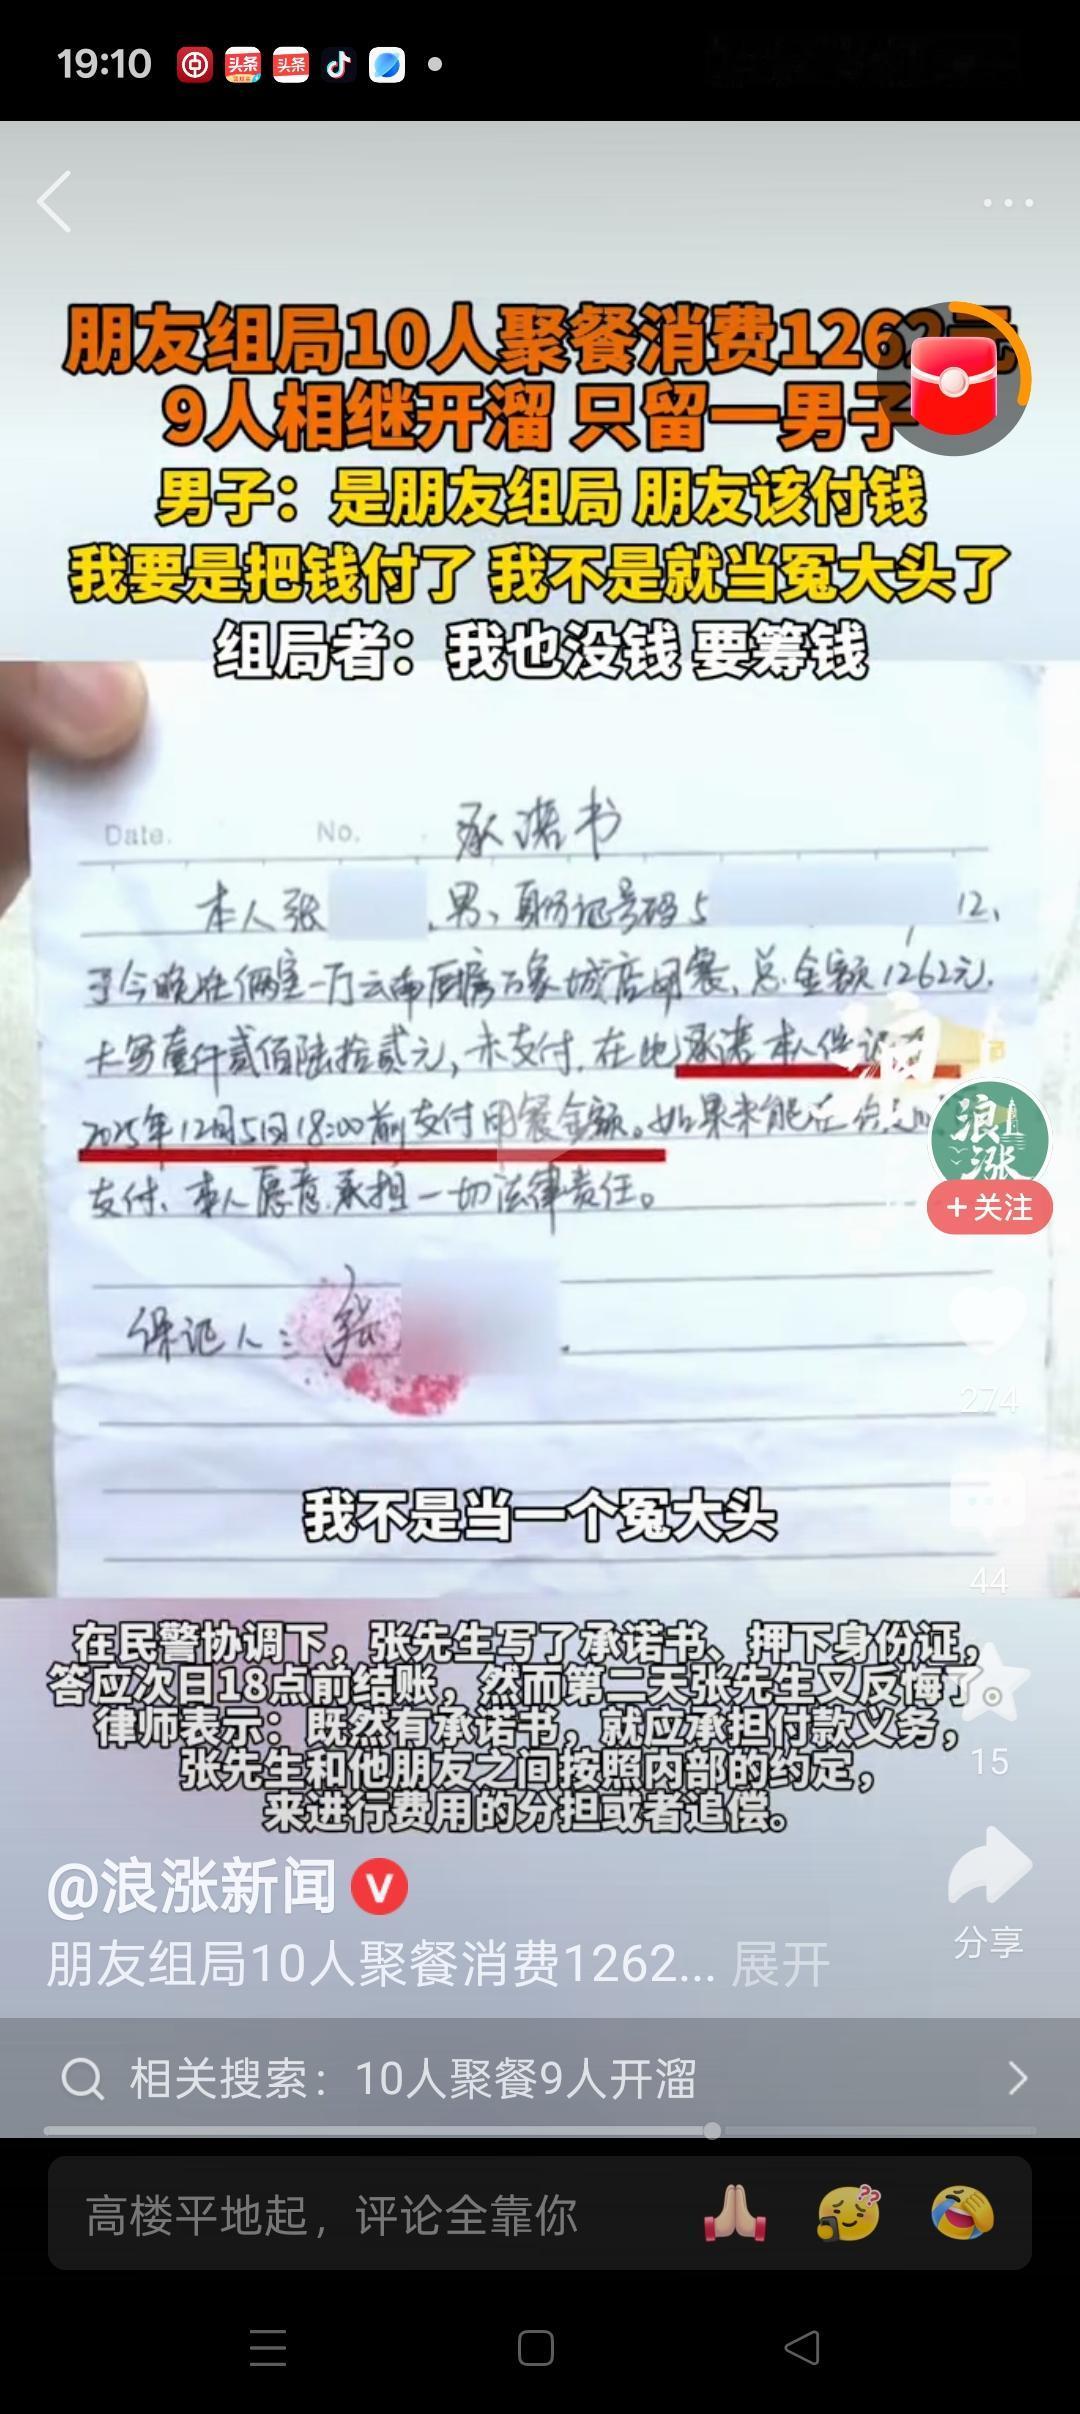 19:10
头条
头条
朋友组局10人聚餐消费1262元
9人相继开溜 只留一男子
男子：是朋友组局 朋友该付钱
我要是把钱付了 我不是就当冤大头了
组局者：我也没钱 要筹钱
Date. No. 承诺书
本人张 ,男、身份证号码5 12、
于今晚在俩室一厅云南厨房万象城店用餐、总金额1262元.
大写壹仟贰佰陆拾贰元，未支付.在此承诺本人保证
2025年12月5日18:00前支付用餐金额。如果未能在
支付、本人愿意承担一切法律责任。
保证人：张
浪涨
+关注
274
我不是当一个冤大头
44
在民警协调下，张先生写了承诺书、押下身份证，
答应次日18点前结账，然而第二天张先生又反悔了。
律师表示：既然有承诺书，就应承担付款义务，
张先生和他朋友之间按照内部的约定，
来进行费用的分担或者追偿。
15
@浪涨新闻 V
分享
朋友组局10人聚餐消费1262... 展开
相关搜索：10人聚餐9人开溜
高楼平地起，评论全靠你